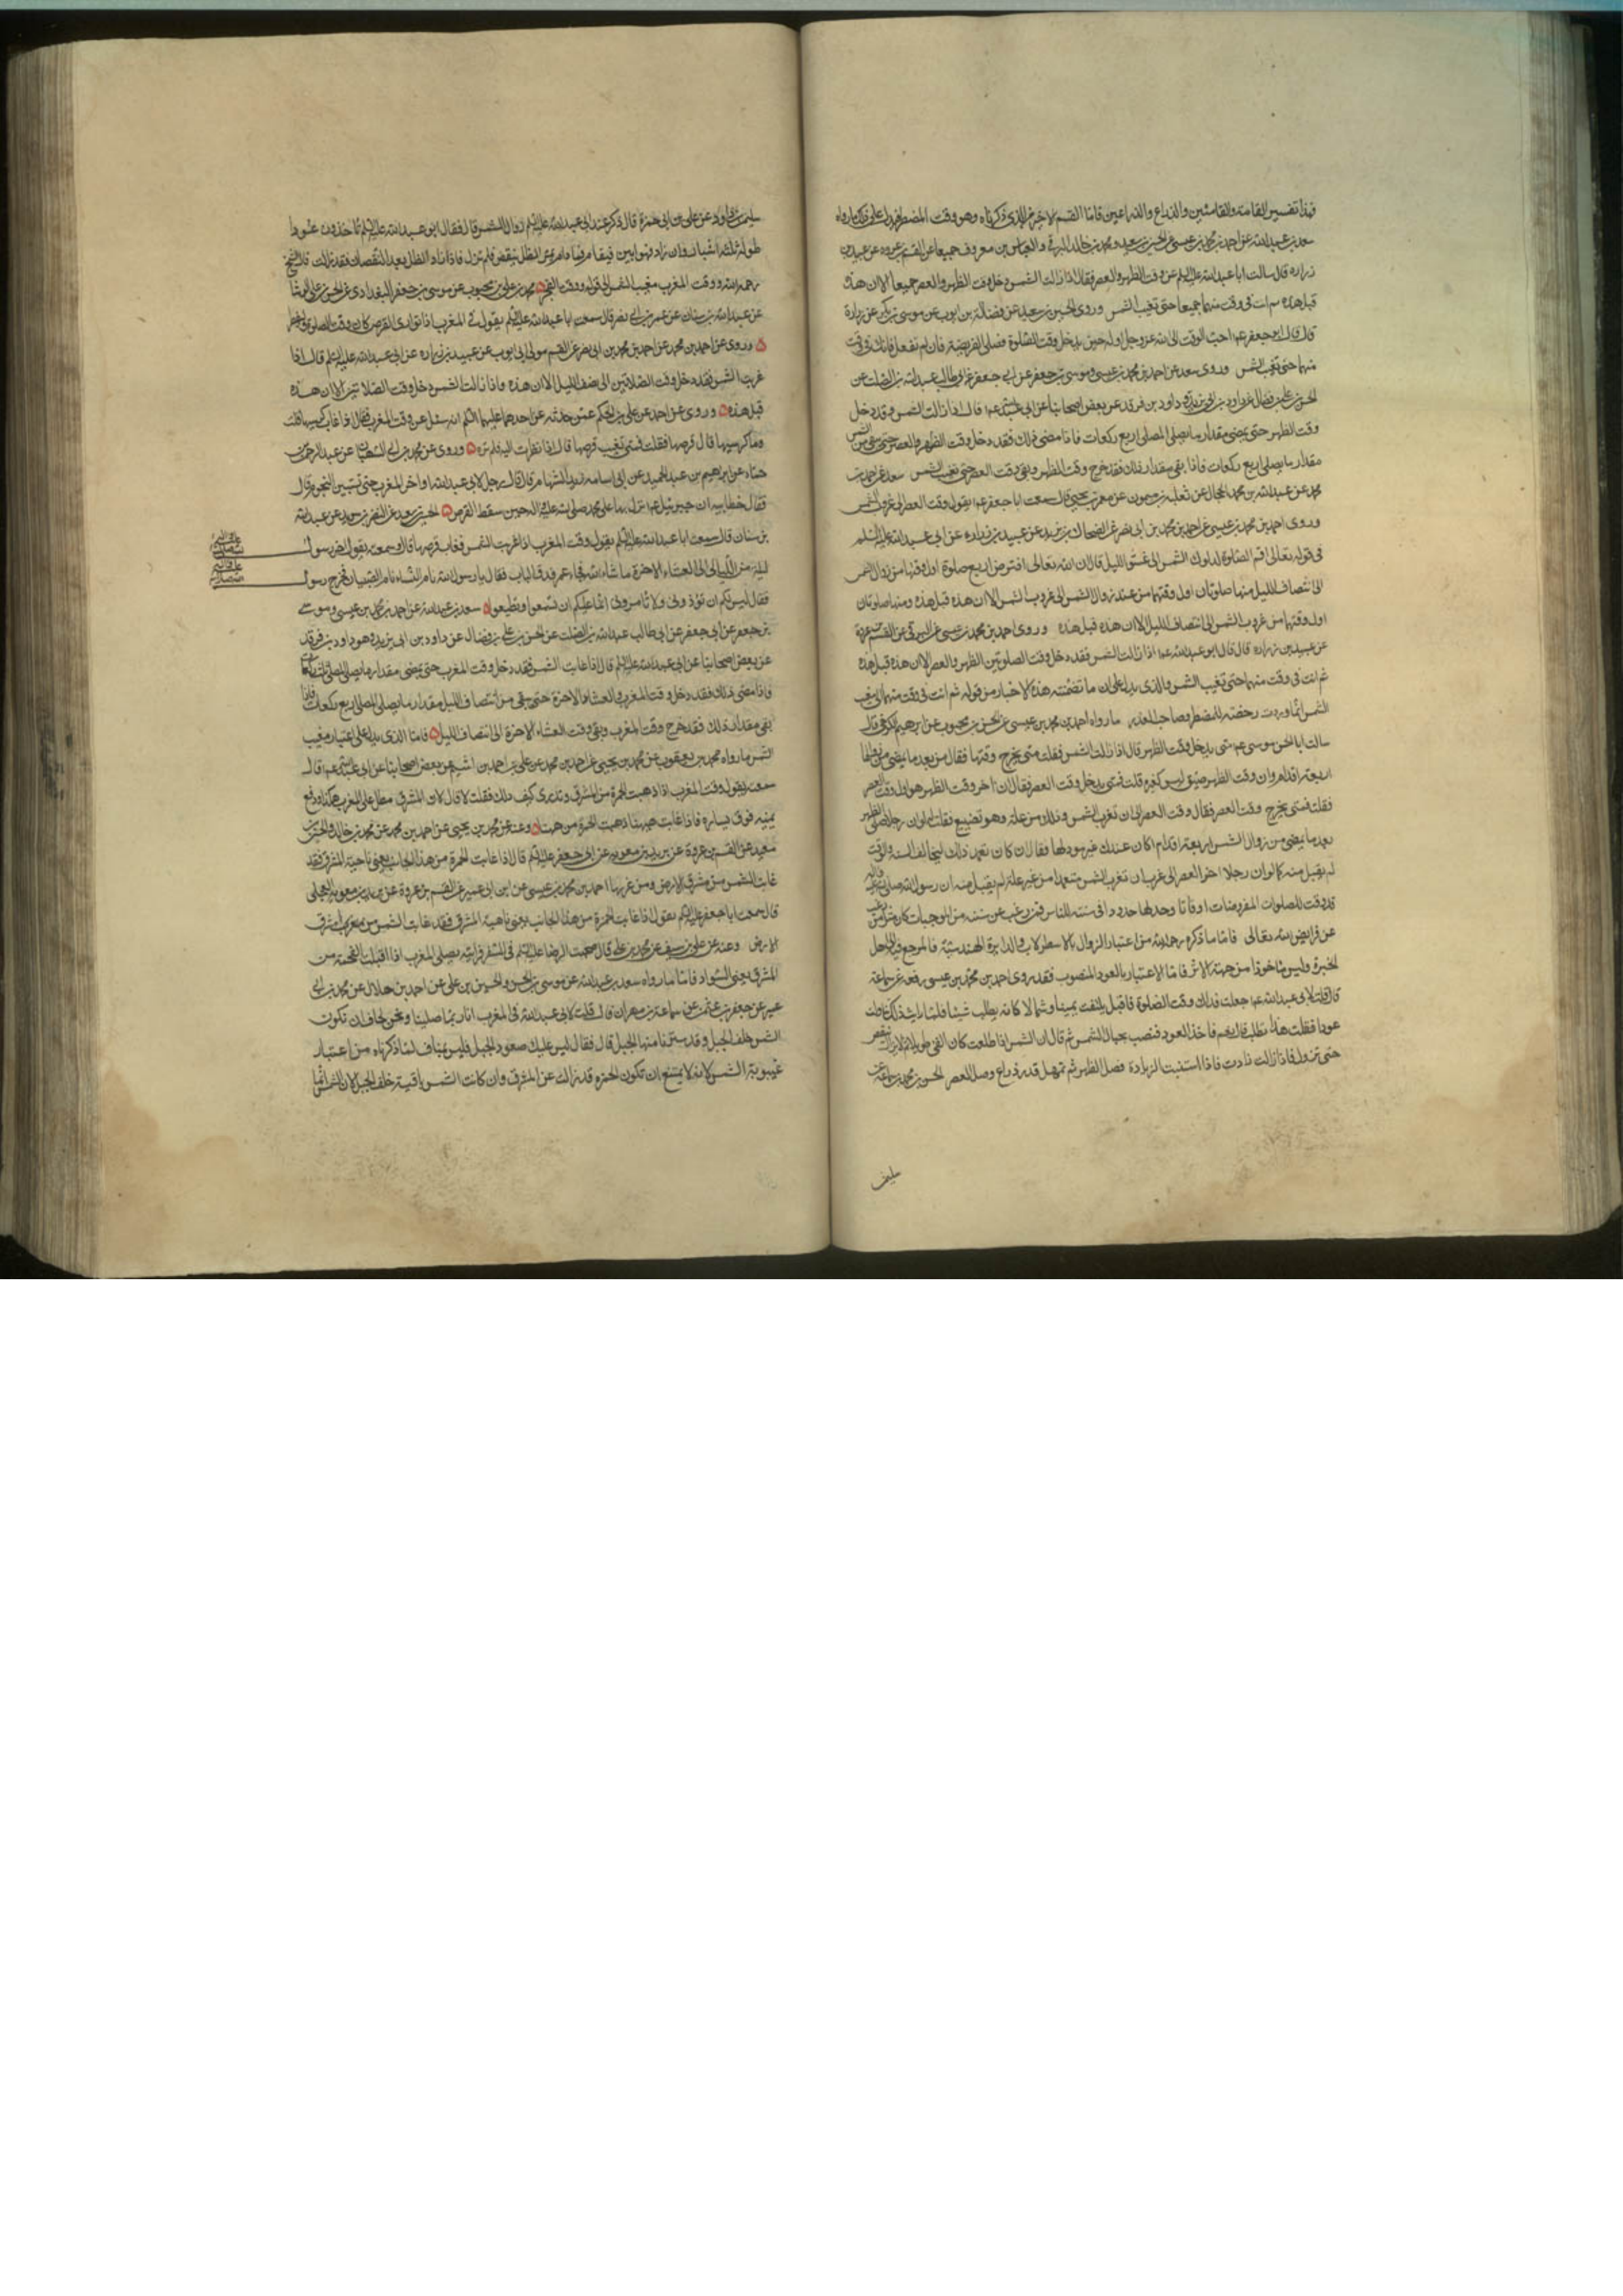 فهذا تفسير القامة والقامتين والذراع والذراعين فاما القسم الاخير الذي ذكرناه وهو وقت المضطر فيدل على ذلك ما رواه
سعد بن عبدالله عن احمد بن محمد بن عيسى عن الحسين بن سعيد ومحمد بن خالد البرقي والعباس بن معروف جميعا عن القسم بن عروه عن عبيد بن
زراره قال سالت ابا عبدالله عليه السلم عن وقت الظهر والعصر فقال اذا زالت الشمس دخل وقت الظهر والعصر جميعا الا ان هذه
قبل هذه ثم انت في وقت منهما جميعا حتى تغيب الشمس وروى الحسين بن سعيد عن فضالة بن ايوب عن موسى بن بكر عن زرارة
قال قال ابو جعفر عم احب الوقت الى الله عز وجل اوله حين يدخل وقت الصلوة فصلى الفريضة فان لم تفعل فانك في وقت
منهما حتى تغيب الشمس وروى سعد عن احمد بن محمد بن عيسى وموسى بن جعفر عن ابي جعفر عن ابي طالب عبدالله بن الصلت عن
الحسن بن علي بن فضال عن داود بن ابي يزيد وهو داود بن فرقد عن بعض اصحابنا عن ابي عبدالله عم قال اذا زالت الشمس فقد دخل
وقت الظهر حتى يمضى مقدار ما يصلى المصلى اربع ركعات فاذا مضى ذلك فقد دخل وقت الظهر والعصر حتى يبقى من الشمس
مقدار ما يصلى اربع ركعات فاذا بقى مقدار ذلك فقد خرج وقت الظهر وبقى وقت العصر حتى تغيب الشمس سعد عن احمد بن
محمد عن عبدالله بن محمد الحجال عن ثعلبه بن ميمون عن معمر بن يحيى قال سمعت ابا جعفر عم يقول وقت العصر الى غروب الشمس
وروى احمد بن محمد بن عيسى عن احمد بن محمد بن ابي نصر عن الضحاك بن زيد عن عبيد بن زراره عن ابي عبدالله عليه السلم
في قوله تعالى اقم الصلوة لدلوك الشمس الى غسق الليل قال ان الله تعالى افترض اربع صلوة اول وقتها من زوال الشمس
الى انتصاف الليل منها صلوتان اول وقتهما من عند زوال الشمس الى غروب الشمس الا ان هذه قبل هذه ومنها صلوتان
اول وقتهما من غروب الشمس الى انتصاف الليل الا ان هذه قبل هذه وروى احمد بن محمد بن عيسى عن البرقي عن القسم بن عروة
عن عبيد بن زراره قال قال ابو عبدالله عم اذا زالت الشمس فقد دخل وقت الصلوتين الظهر والعصر الا ان هذه قبل هذه
ثم انت في وقت منهما حتى تغيب الشمس والذى يدل على ان ما تضمنته هذه الاخبار من قوله ثم انت في وقت منهما الى مغيب
الشمس انما وردت رخصة للمضطر وصاحب العذر ما رواه احمد بن محمد بن عيسى عن الحسن بن محبوب عن ابرهيم الكرخي قال
سالت ابا الحسن موسى عم متى يدخل وقت الظهر قال اذا زالت الشمس فقلت متى يخرج وقتها فقال من بعد ما يمضى من زوالها
اربعة اقدام وان وقت الظهر ضيق ليس كغيره قلت فمتى يدخل وقت العصر فقال ان اخر وقت الظهر هو اول وقت العصر
فقلت فمتى يخرج وقت العصر فقال وقت العصر الى ان تغرب الشمس وذلك من علة وهو تضييع فقلت له لو ان رجلا صلى الظهر
بعد ما يمضى من زوال الشمس اربعة اقدام اكان عندك غير مود لها فقال ان كان تعمد ذلك ليخالف السنة والوقت
لم يقبل منه كما لو ان رجلا اخر العصر الى قرب ان تغرب الشمس متعمدا من غير علة لم يقبل منه ان رسول الله صلى الله عليه واله
قد وقت للصلوات المفروضات اوقاتا وحد لها حدودا في سنته للناس فمن رغب عن سنة من سننه الموجبات كان مثل من رغب
عن فرايض الله تعالى فاما ما ذكره رحمه الله من اعتبار الزوال بالاسطرلاب والدايرة الهندسية فالمرجع فيه الى اهل
الخبرة وليس ماخوذا من جهة الاثر فاما الاعتبار بالعود المنصوب فقد روى احمد بن محمد بن عيسى رفعه عن سماعة
قال قلت لابي عبدالله عم جعلت فداك وقت الصلوة فاقبل يلتفت يمينا وشمالا كانه يطلب شيئا فلما رايت ذلك تناولت
عودا فقلت هذا تطلب قال نعم فاخذ العود فنصب بحيال الشمس ثم قال ان الشمس اذا طلعت كان الفئ طويلا ثم لا يزال ينقص
حتى تزول فاذا زالت زادت فاذا استبنت الزيادة فصل الظهر ثم تمهل قدر ذراع وصل العصر الحسن بن محمد بن سماعة عن
سليمن
سليمن بن داود عن علي بن ابي حمزة قال ذكر عند ابي عبدالله عليه السلم زوال الشمس قال فقال ابو عبدالله عليه السلم تاخذون عودا
طوله ثلثة اشبار وان زاد فهو ابين فيقام فما دام ترى الظل ينقص فلم تزل فاذا زاد الظل بعد النقصان فقد زالت قال الشيخ
رحمه الله ووقت المغرب مغيب الشمس الى قوله ووقت الفجر محمد بن علي بن محبوب عن موسى بن جعفر البغدادي عن الحسن بن علي الوشا
عن عبدالله بن سنان عن عمرو بن ابي نصر قال سمعت ابا عبدالله عليه السلم يقول في المغرب اذا توارى القرص كان وقت الصلوة وافطر
وروى عن احمد بن محمد عن احمد بن محمد بن ابي نصر عن القسم مولى ابي ايوب عن عبيد بن زراره عن ابي عبدالله عليه السلم قال اذا
غربت الشمس فقد دخل وقت الصلاتين الى نصف الليل الا ان هذه قبل هذه واذا زالت الشمس دخل وقت الصلاتين الا ان هذه
قبل هذه وروى عن احمد عن علي بن الحكم عمن حدثه عن احدهما عليهما السلم انه سئل عن وقت المغرب فقال اذا غاب كرسيها قلت
وما كرسيها قال قرصها فقلت فمتى تغيب قرصها قال اذا نظرت اليه فلم تره وروى عن محمد بن ابي الصهبان عن عبد الرحمن بن
حماد عن ابراهيم بن عبد الحميد عن ابي اسامه زيد الشحام قال قال رجل لابي عبدالله اوخر المغرب حتى تستبين النجوم قال
فقال خطابية ان جبرئيل عم نزل بها على محمد صلى الله عليه واله حين سقط القرص الحسين بن سعيد عن النضر بن سويد عن عبدالله
بن سنان قال سمعت ابا عبدالله عليه السلم يقول وقت المغرب اذا غربت الشمس فغاب قرصها قال وسمعته يقول اخر رسول
ليلة من الليالي العشاء الاخرة ما شاء الله فجاء عمر فدق الباب فقال يا رسول الله نام النساء نام الصبيان فخرج رسول
فقال ليس لكم ان توذوني ولا تامروني انما عليكم ان تسمعوا وتطيعوا سعد بن عبدالله عن احمد بن محمد بن عيسى وموسى
بن جعفر عن ابي جعفر عن ابي طالب عبدالله بن الصلت عن الحسن بن علي بن فضال عن داود بن ابي يزيد وهو داود بن فرقد
عن بعض اصحابنا عن ابي عبدالله عليه السلم قال اذا غابت الشمس فقد دخل وقت المغرب حتى يمضى مقدار ما يصلى المصلى ثلث ركعات
فاذا مضى ذلك فقد دخل وقت المغرب والعشاء الاخرة حتى يبقى من انتصاف الليل مقدار ما يصلى المصلى اربع ركعات فاذا
بقى مقدار ذلك فقد خرج وقت المغرب وبقى وقت العشاء الاخرة الى انتصاف الليل فاما الذى يدل على اعتبار مغيب
الشمس ما رواه محمد بن يعقوب عن محمد بن يحيى عن احمد بن محمد عن علي بن احمد بن اشيم عن بعض اصحابنا عن ابي عبدالله عم قال
سمعته يقول وقت المغرب اذا ذهبت الحمرة من المشرق وتدرى كيف ذلك فقلت لا قال لان المشرق مطل على المغرب هكذا ورفع
يمينه فوق يساره فاذا غابت هيهنا ذهبت الحمرة من ههنا وعنه عن محمد بن يحيى عن احمد بن محمد عن محمد بن خالد والحسين بن
سعيد عن القسم بن عروة عن بريد بن معويه عن ابي جعفر عليه السلم قال اذا غابت الحمرة من هذا الجانب يعني ناحية المشرق فقد
غابت الشمس من مشرق الارض ومن غربها احمد بن محمد بن عيسى عن ابن ابي عمير عن القسم بن عروة عن بريد بن معويه العجلي
قال سمعت ابا جعفر عليه السلم يقول اذا غابت الحمرة من هذا الجانب يعني ناحية المشرق فقد غابت الشمس من شرق
الارض وعنه عن علي بن سيف عن محمد بن علي قال صحبت الرضا عليه السلم في السفر فرايته يصلى المغرب اذا اقبلت الفحمة من
المشرق يعني السواد فاما ما رواه سعد بن عبدالله عن موسى بن الحسن والحسن بن علي عن احمد بن هلال عن محمد بن ابي
عمير عن جعفر بن عثمن عن سماعة بن مهران قال قلت لابي عبدالله في المغرب انا ربما صلينا ونحن نخاف ان تكون
الشمس خلف الجبل وقد سترنا منها الجبل قال فقال ليس عليك صعود الجبل فليس بمناف لما ذكرناه من اعتبار
غيبوبة الشمس لانه لا يمتنع ان تكون الحمرة قد زالت عن المشرق وان كانت الشمس باقية خلف الجبل لان الشمس انما